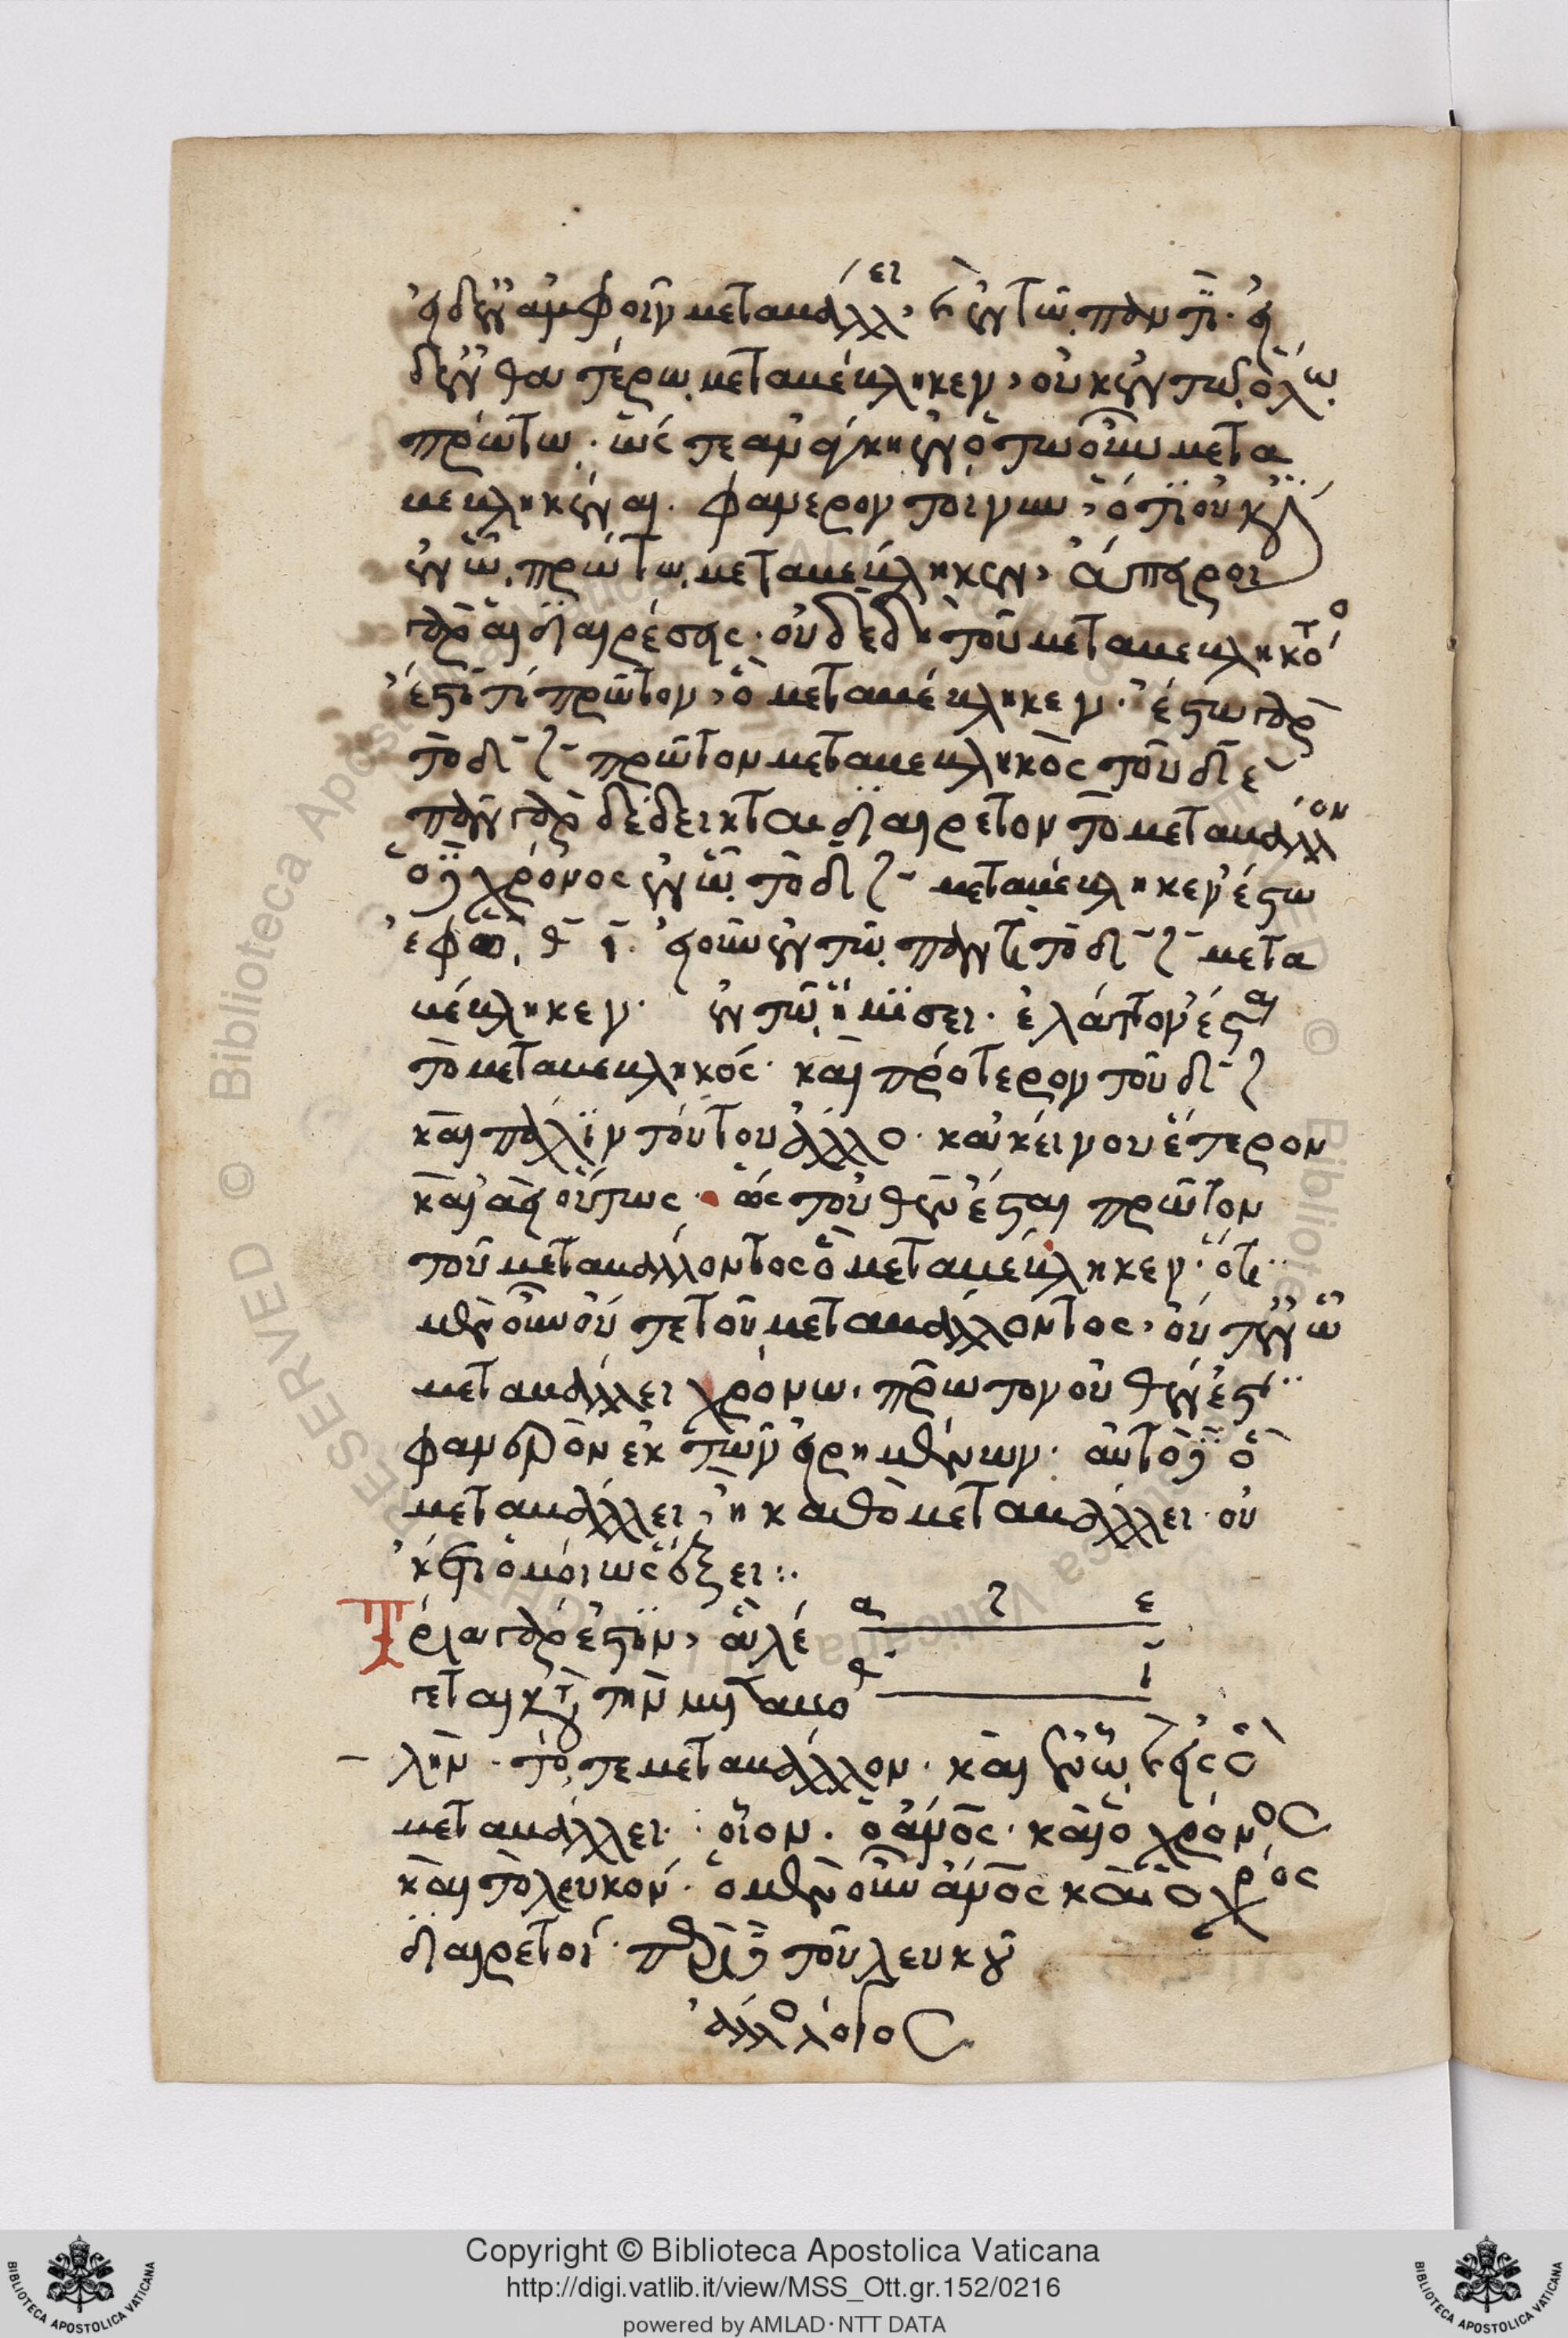 εἰ δ' ἐν ἀμφοῖν μεταβάλλει, καὶ ἐν τῷ παντί. εἰ
δ' ἐν θατέρῳ μεταβέβληκεν, οὐκ ἐν τῷ ὅλῳ
πρώτῳ. ὥστε ἀνάγκη ἐν ὁτῳοῦν μετα
βεβληκέναι. φανερὸν τοίνυν, ὅτι οὐκ ἔστιν
ἐν ᾧ πρώτῳ μεταβέβληκεν, ἄπειροι
γὰρ αἱ διαιρέσεις. οὐδὲ δὴ τοῦ μεταβεβληκότος
ἐστί τι πρῶτον, ὃ μεταβέβληκεν. ἔστω γὰρ
τὸ δζ πρῶτον μεταβεβληκὸς τοῦ δε
πᾶν γὰρ δέδεικται διαιρετὸν τὸ μεταβάλλον
ὁ δὲ χρόνος ἐν ᾧ τὸ δζ μεταβέβληκεν ἔστω
ἐφ' ᾧ θι. εἰ οὖν ἐν τῷ παντὶ τὸ δζ μετα
βέβληκεν. ἐν τῷ ἡμίσει ἔλαττον ἔσται
τὸ μεταβεβληκός. καὶ πρότερον τοῦ δζ
καὶ πάλιν τούτου ἄλλο. κἀκείνου ἕτερον
καὶ ἀεὶ οὕτως. ὥστ' οὐθὲν ἔσται πρῶτον
τοῦ μεταβάλλοντος ὃ μεταβέβληκεν. ὅτι
μὲν οὖν οὔτε τοῦ μεταβάλλοντος, οὔτ' ἐν ᾧ
μεταβάλλει χρόνῳ, πρῶτον οὐθέν ἐστι
φανερὸν ἐκ τῶν εἰρημένων. αὐτὸ δὲ ὃ
μεταβάλλει, ἢ καθὸ μεταβάλλει. οὐ
κέτι ὁμοίως ἕξει:
Τρία γάρ ἐστιν, ἃ λέ
γεται κατὰ τὴν μεταβο
λήν. τό τε μεταβάλλον. καὶ ἐν ᾧ καὶ εἰς ὃ
μεταβάλλει. οἷον. ὁ ἄνος. καὶ ὁ χρόνος
καὶ τὸ λευκόν. ὁ μὲν οὖν ἄνος καὶ ὁ χρόνος
διαιρετοί. περὶ δὲ τοῦ λευκοῦ
ἄλλος λόγος
α ζ ε
θ ι